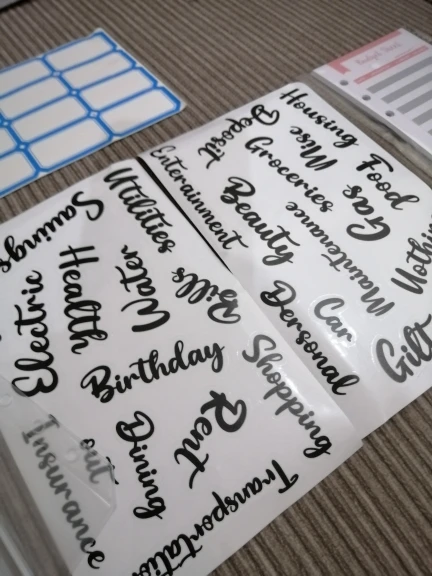 Savings
Utilities
Electric
Health
Water
Bills
Birthday
Insurance
Dining
out
Rent
Shopping
Entertainment
Deposit
Housing
Misc
Groceries
Food
Beauty
Gas
Maintenance
Personal
Car